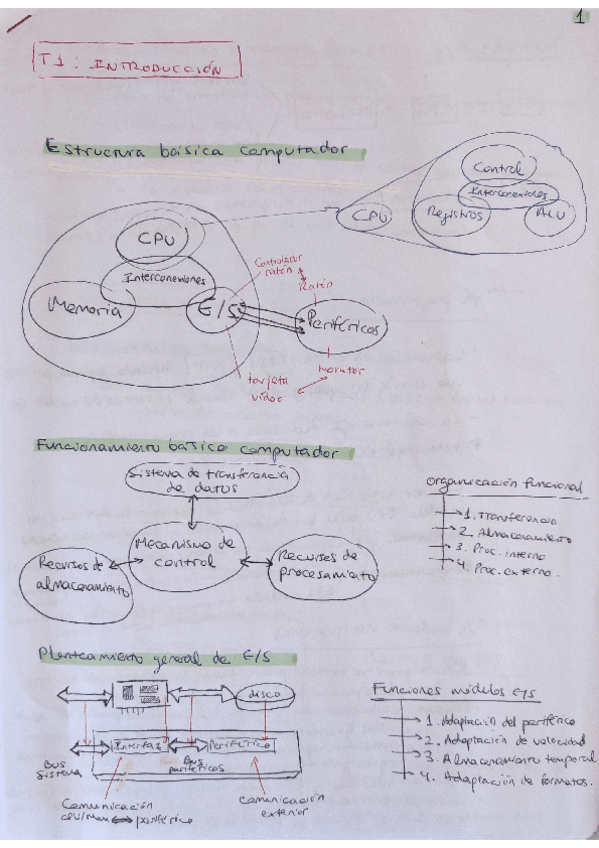 1
T1: INTRODUCCIÓN
Estructura básica computador
Control
Interconexiones
Registros
ALU
CPU
CPU
Interconexiones
Memoria
E/S
Controlador
ratón
Ratón
Periféricos
monitor
tarjeta
vídeo
Funcionamiento básico computador
Sistema de transferencia
de datos
Mecanismo de
control
Recursos de
almacenamiento
Recursos de
procesamiento
Organización funcional
1. Transferencia
2. Almacenamiento
3. Proc. interno
4. Proc. externo.
Planteamiento general de E/S
disco
Interfaz
Periférico
Bus
Sistema
Bus
periféricos
Comunicación
CPU/Mem ⟷ periférico
comunicación
exterior
Funciones módulos e/s
1. Adaptación del periférico
2. Adaptación de velocidad
3. Almacenamiento temporal
4. Adaptación de formatos.